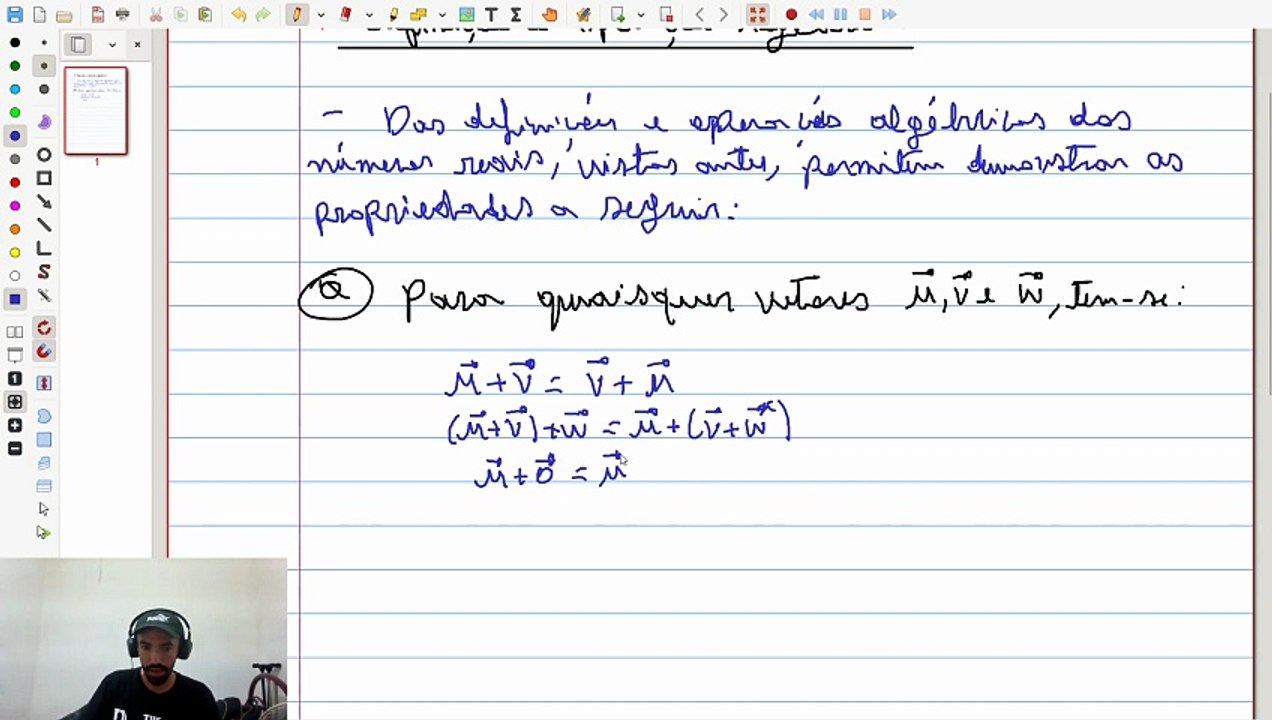 - Das definições e operações algébricas dos
números reais, vistas antes, permitem demonstrar as
propriedades a seguir:
ⓐ Para quaisquer vetores u⃗, v⃗ e w⃗, tem-se:
u⃗ + v⃗ = v⃗ + u⃗
(u⃗ + v⃗) + w⃗ = u⃗ + (v⃗ + w⃗)
u⃗ + 0⃗ = u⃗
1